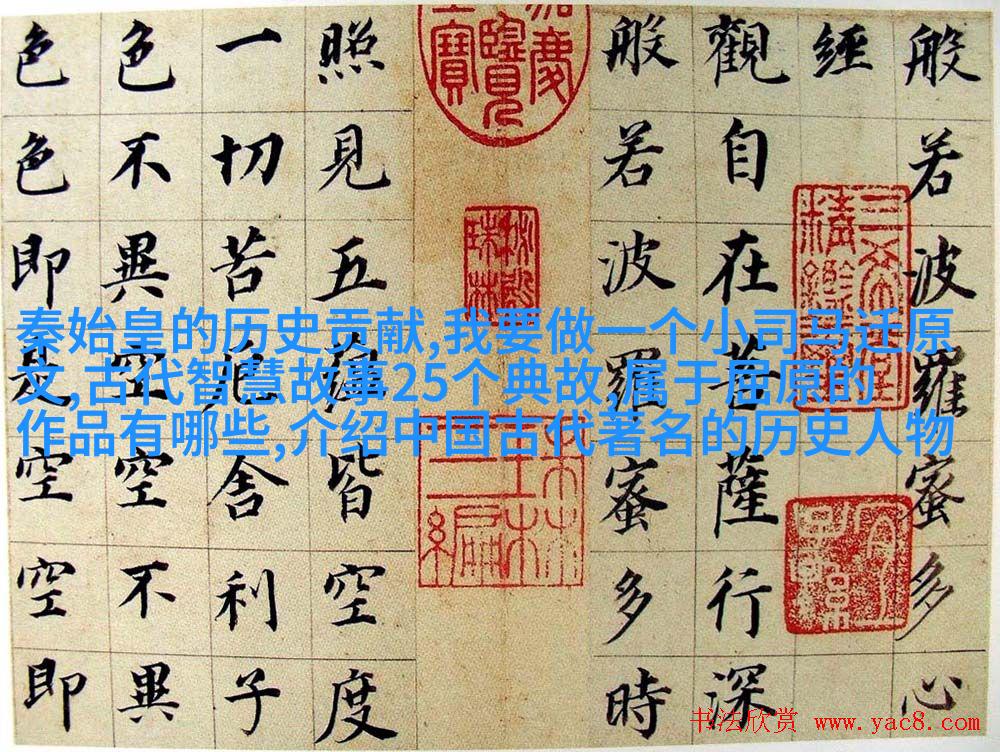 般若波羅蜜多心
經
觀自在菩薩行深
般若波羅蜜多時
照見五蘊皆空度
一切苦厄舍利子
色不異空空不異
色色即是空空即
秦始皇的历史贡献,我要做一个小司马迁原
文,古代智慧故事25个典故,属于屈原的
作品有哪些,介绍中国古代著名的历史人物
书法欣赏 www.yac8.com